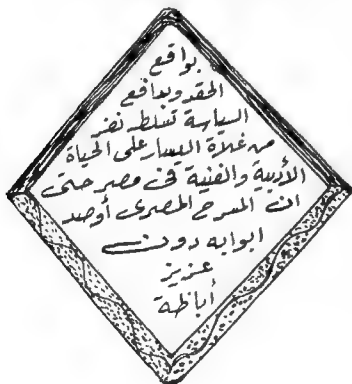 بواقع
الحقد وبدافع
السياسة تسلط نفر
من غلاة اليسار على الحياة
الأدبية والفنية في مصر حتى
ان المسرح المصرى أوصد
ابوابه دون
عزيز
أباظة